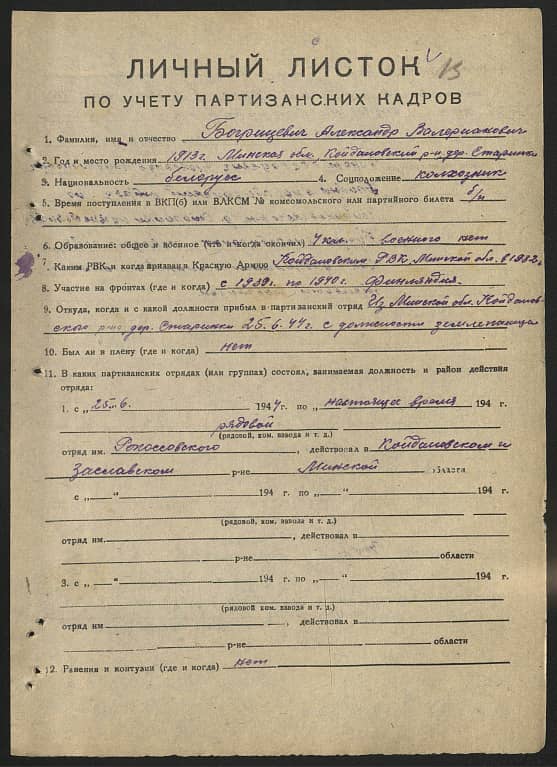 ЛИЧНЫЙ ЛИСТОК
15
ПО УЧЕТУ ПАРТИЗАНСКИХ КАДРОВ
1. Фамилия, имя и отчество Богрицевич Александр Валерианович
2. Год и место рождения 1913г. Минская обл. Койдановский р-н дер. Старинки
3. Национальность белорус 4. Соцположение колхозник
5. Время поступления в ВКП(б) или ВЛКСМ № комсомольского или партийного билета б/п
6. Образование: общее и военное (что и когда окончил) 4 кл. военного нет
7. Каким РВК и когда призван в Красную Армию Койдановским РВК Минской обл. в
8. Участие на фронтах (где и когда) с 1939г. по 1940г. Финляндия.
9. Откуда, когда и с какой должности прибыл в партизанский отряд Из Минской обл. Койданов-
ского р-на дер. Старинки 25.6.44г. с должности землепашца
10. Был ли в плену (где и когда) нет
11. В каких партизанских отрядах (или группах) состоял, занимаемая должность и район действия
отряда:
1. с „25.6. 1944г. по „настоящее время 194 г.
рядовой
(рядовой, ком. взвода и т. д.)
отряд им. Рокоссовского, действовал в Койдановском и
Заславском р-не Минской области
с „ “ 194 г. по „ “ 194 г.
(рядовой, ком. взвода и т. д.)
отряд им. , действовал в
р-не области
3. с „ “ 194 г. по „ “ 194 г.
(рядовой, ком. взвода и т. д.)
отряд им. , действовал в
р-не области
12. Ранения и контузии (где и когда) нет